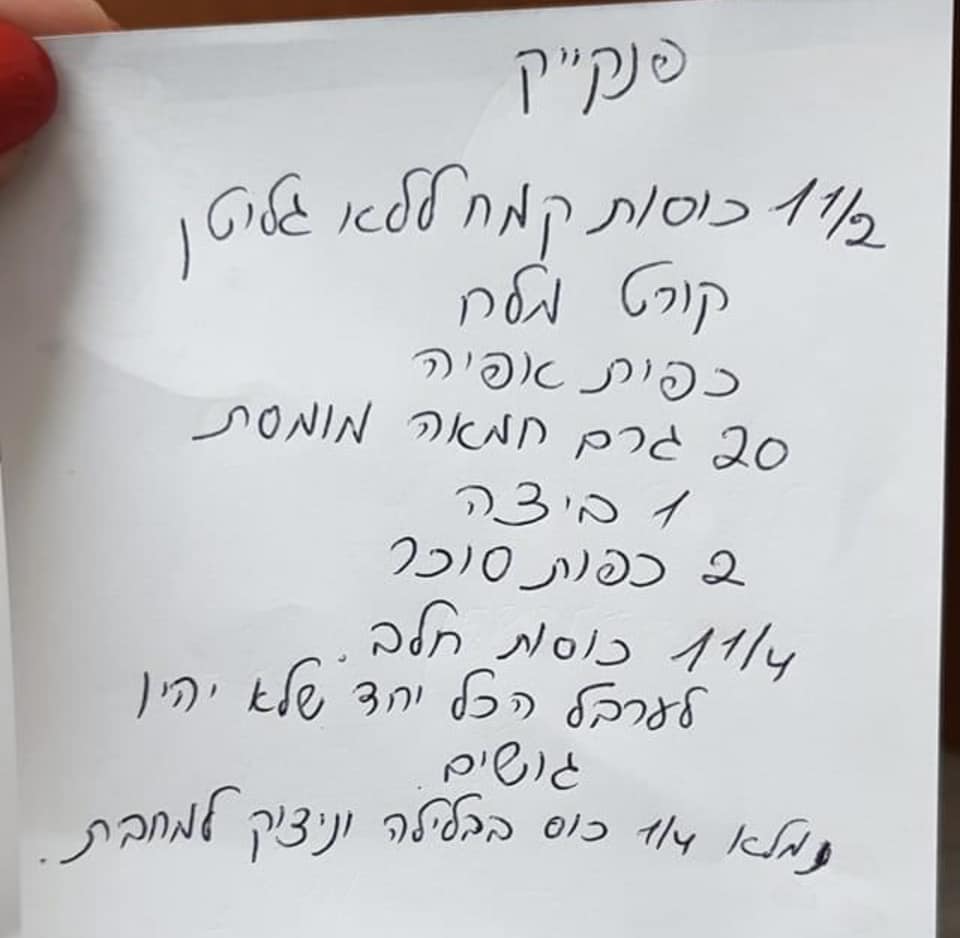 פנקייק
1 1/2 כוסות קמח ללא גליטן
קורט מלח
כפית אפיה
20 גרם חמאה מומסת
1 ביצה
2 כפות סוכר
1 1/4 כוסות חלב.
לערבל הכל יחד שלא יהיו
גושים.
נמלא 1/4 כוס בבלילה וניצוק למחבת.